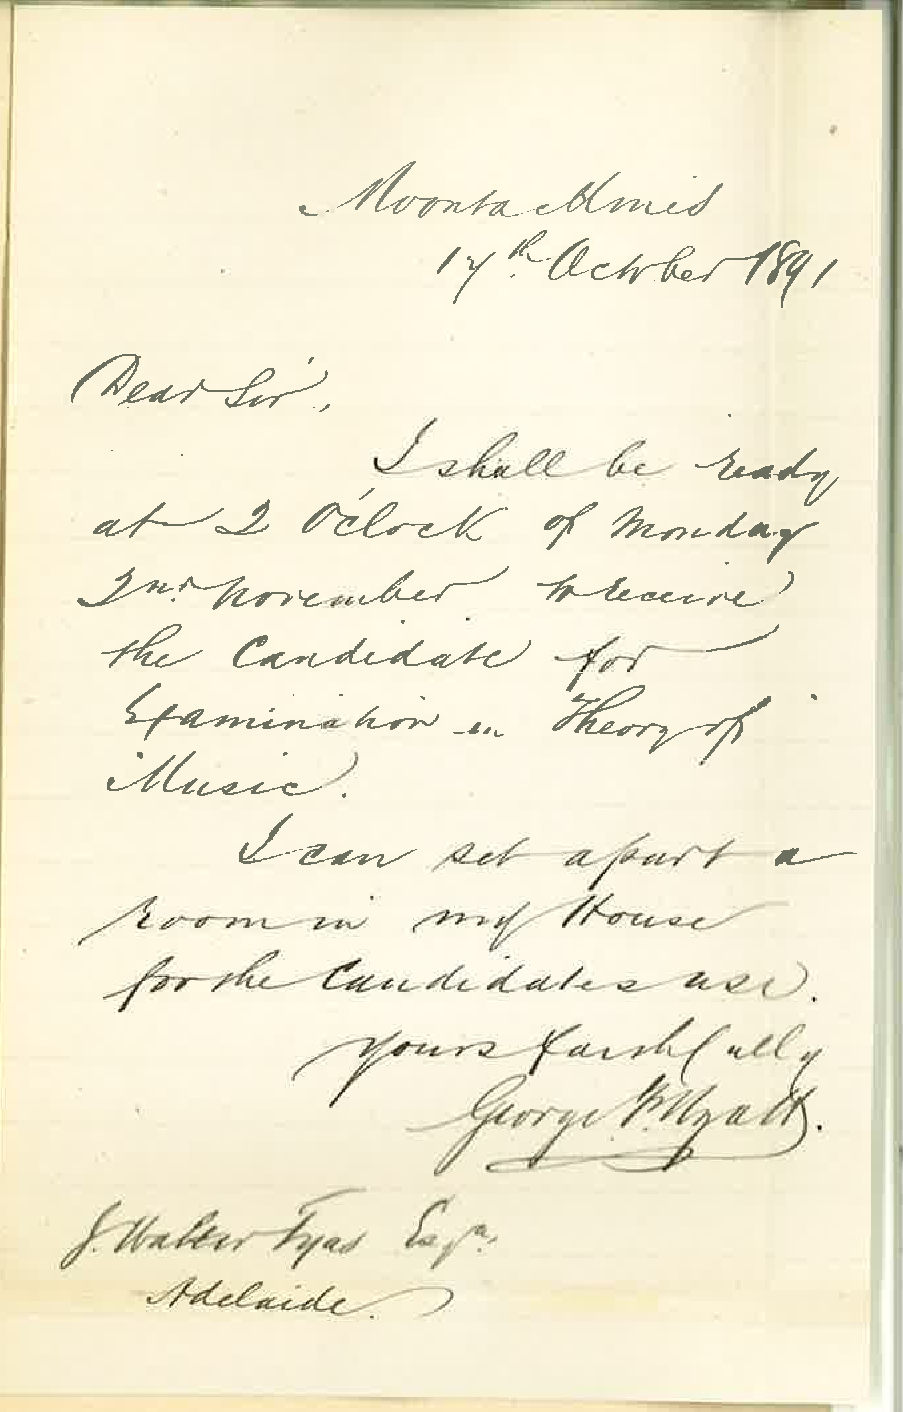 Moonta Mines
17th October 1891
Dear Sir,
I shall be ready
at 2 O'Clock of Monday
2nd November to receive
the Candidate for
Examination in Theory of
Music.
I can set apart a
room in my House
for the Candidates use.
Yours faithfully
George F. Wyatt.
J. Walter Tyas Esqr.
Adelaide.